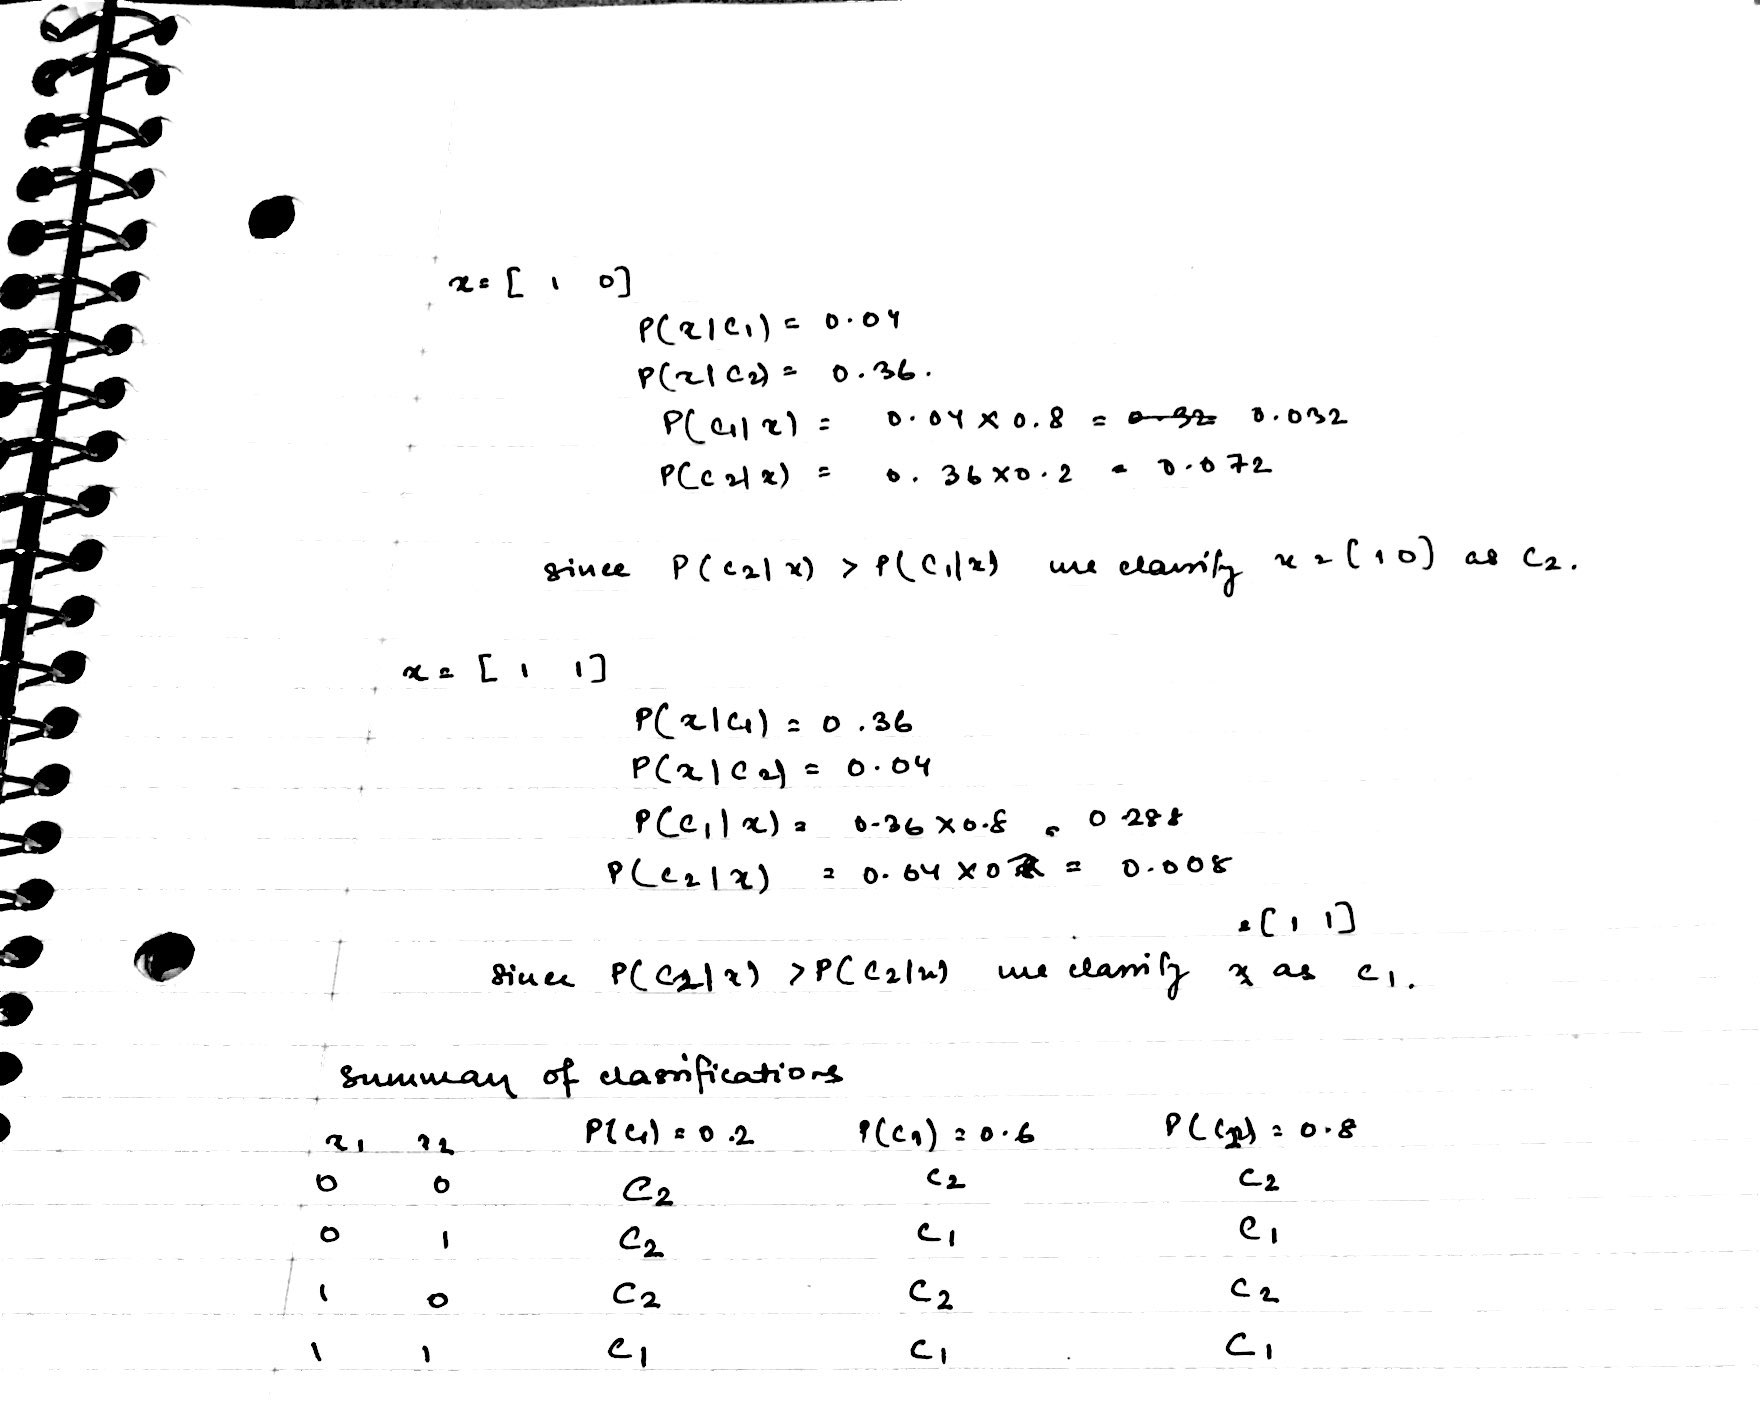 x = [ 1 0]
P(x|C1) = 0.04
P(x|C2) = 0.36.
P(C1|x) = 0.04 × 0.8 = 0.32 0.032
P(C2|x) = 0.36 × 0.2 = 0.072
since P(C2|x) > P(C1|x) we classify x = [1 0] as C2.
x = [ 1 1]
P(x|C1) = 0.36
P(x|C2) = 0.04
P(C1|x) = 0.36 × 0.8 = 0.288
P(C2|x) = 0.04 × 0.2 = 0.008
= [1 1]
since P(C2|x) > P(C2|x) we classify x as C1.
summary of classifications
x1 x2 P(C1) = 0.2 P(C1) = 0.6 P(C1) = 0.8
0 0 C2 C2 C2
0 1 C2 C1 C1
1 0 C2 C2 C2
1 1 C1 C1 C1